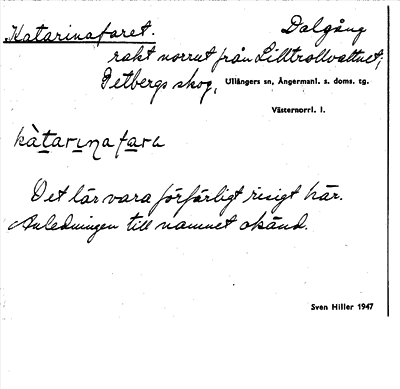 Katarinafaret. Dalgång
rakt norrut från Lilltrollvattnet,
Petbergs skog, Ullångers sn, Ångermanl. s. doms. tg.
Västernorrl. l.
kàtarina fara
Det lär vara förfärligt risigt här.
Anledningen till namnet okänd.
Sven Hiller 1947